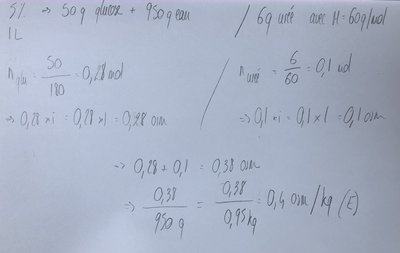 5% → 50 g glucose + 950 g eau / 6g urée avec M = 60g/mol
1L
n glu = 50/180 = 0,28 mol / n urée = 6/60 = 0,1 mol
→ 0,28 × i = 0,28 × 1 = 0,28 osm / → 0,1 × i = 0,1 × 1 = 0,1 osm
→ 0,28 + 0,1 = 0,38 osm
→ 0,38/950 g = 0,38/0,95 kg = 0,4 osm/kg (E)